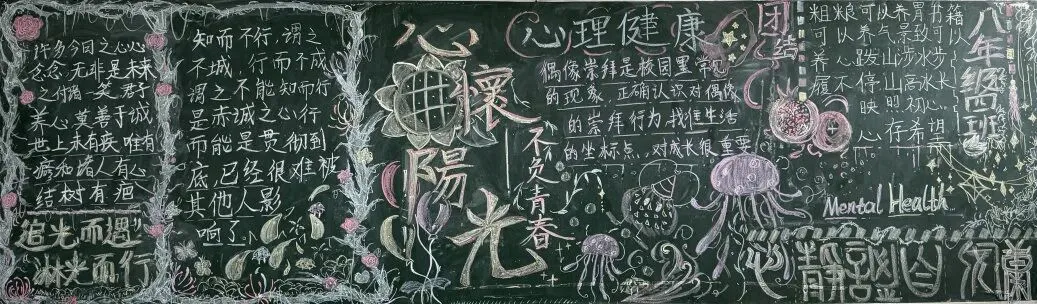 许多今日之心心
念念,无非是未来
之付诸一笑,君子
养心莫善于诚
世上永有疾,唯有
病和诸人有心
结树有疤
追光而遇
沐光而行
知而不行,谓之
不诚,行而不成
谓之不能知而行
是赤诚之心行
而能是贯彻到
底,已经很难被
其他人影
响了
心懷陽光
不负青春
心理健康
偶像崇拜是校园里常见
的现象,正确认识对偶像
的崇拜行为,我们生活
的坐标点,对成长很重要
团结
粗粮可以养胃书籍
可以养气景致可以
养心跋山涉水步
履不停山高水长
映明初心
心存希望
八年级四班
Mental Health
心静
自